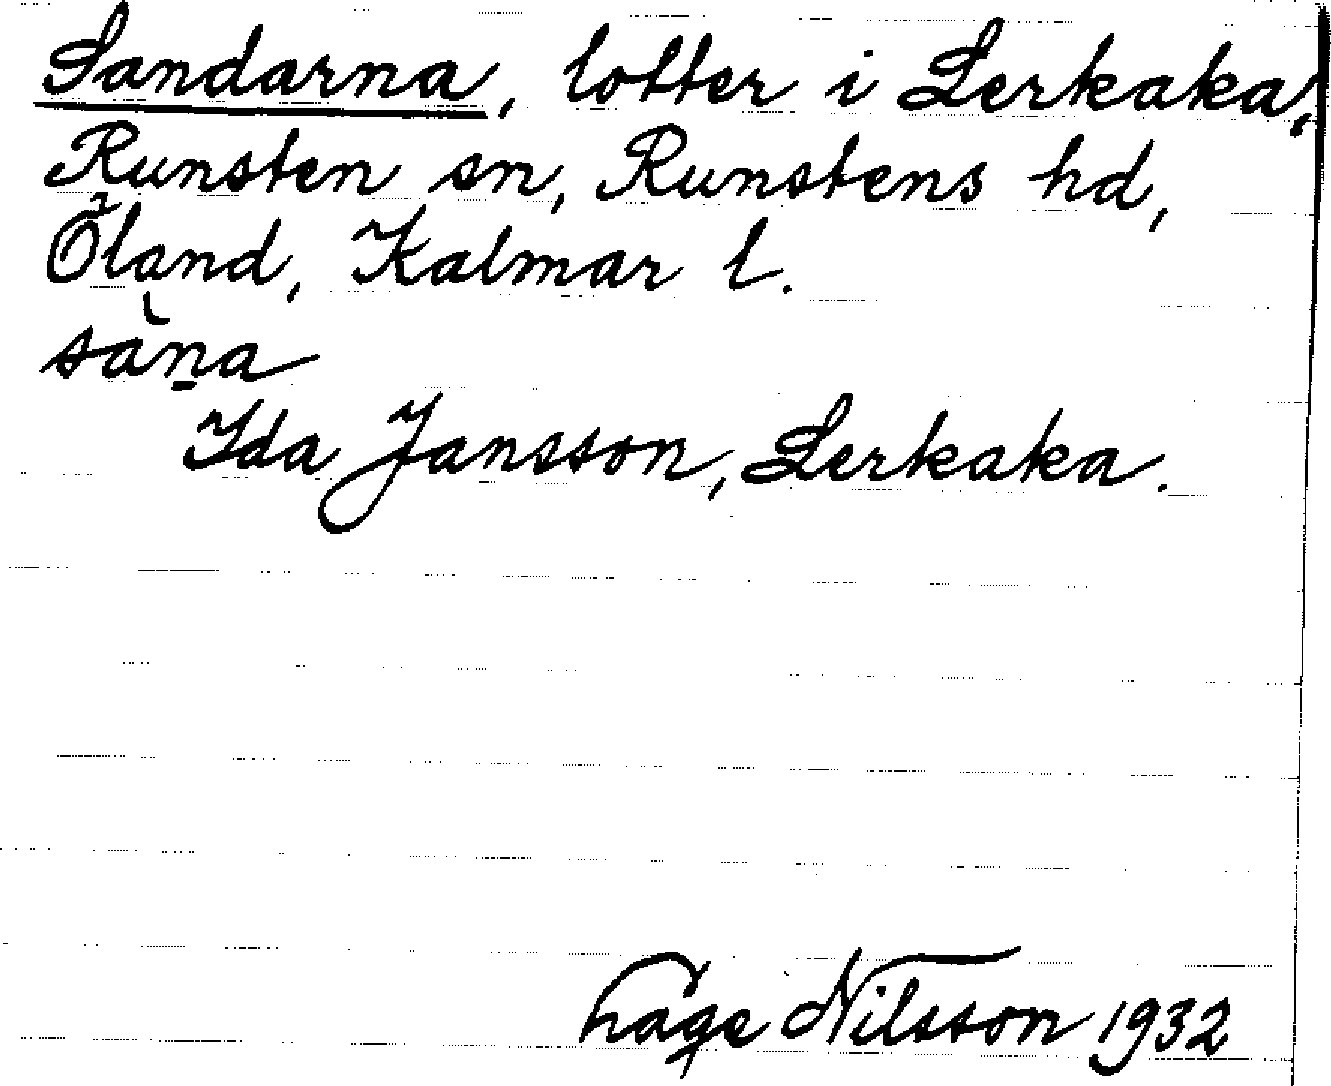 Sandarna, lotter i Lerkaka,
Runsten sn, Runstens hd,
Öland, Kalmar l.
sàṉa
Ida Jansson, Lerkaka.
Hage Nilsson 1932